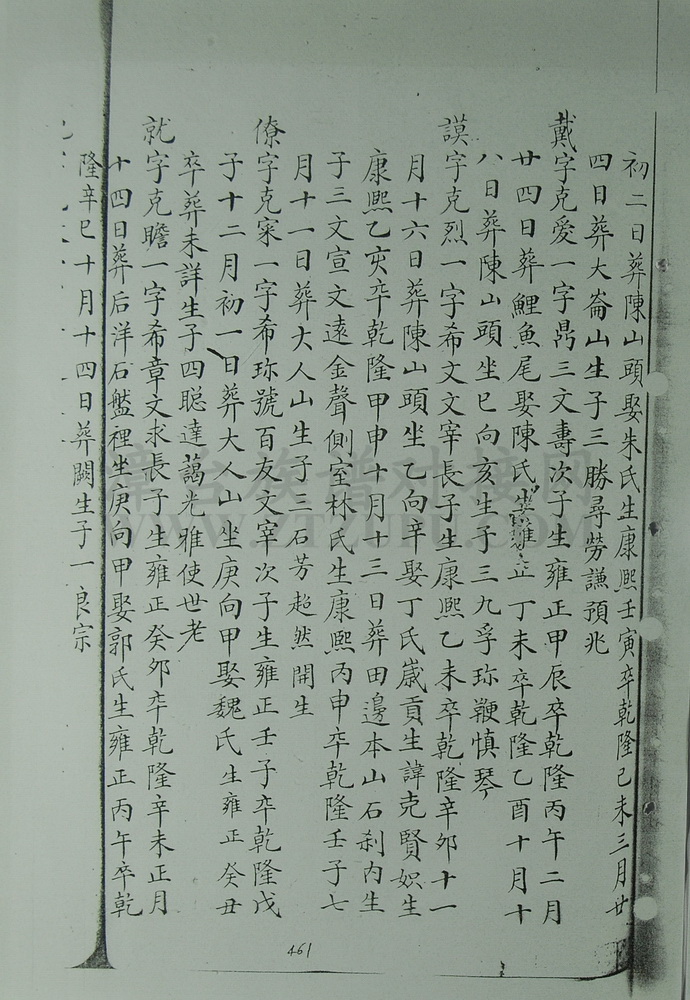 初二日葬陳山頭娶朱氏生康熙壬寅卒乾隆己未三月廿
四日葬大崙山生子三勝尋勞謙預兆
戴字克愛一字鼎三文壽次子生雍正甲辰卒乾隆丙午二月
廿四日葬鯉魚尾娶陳氏生雍正丁未卒乾隆乙酉十月十
八日葬陳山頭坐巳向亥生子三九孚珎鞭慎琴
謨字克烈一字希文文宰長子生康熙乙未卒乾隆辛夘十一
月十六日葬陳山頭坐乙向辛娶丁氏歲貢生諱克賢娰生
康熙乙亥卒乾隆甲申十月十三日葬田邊本山石刹内生
子三文宣文遠金聲側室林氏生康熙丙申卒乾隆壬子七
月十一日葬大人山生子三石芳超然開生
僚字克寀一字希珎號百友文宰次子生雍正壬子卒乾隆戊
子十二月初一日葬大人山坐庚向甲娶魏氏生雍正癸丑
卒葬未詳生子四聡達藹光雅使世老
就字克瞻一字希章文求長子生雍正癸夘卒乾隆辛未正月
十四日葬后洋石盤裡坐庚向甲娶郭氏生雍正丙午卒乾
隆辛巳十月十四日葬闕生子一良宗
461